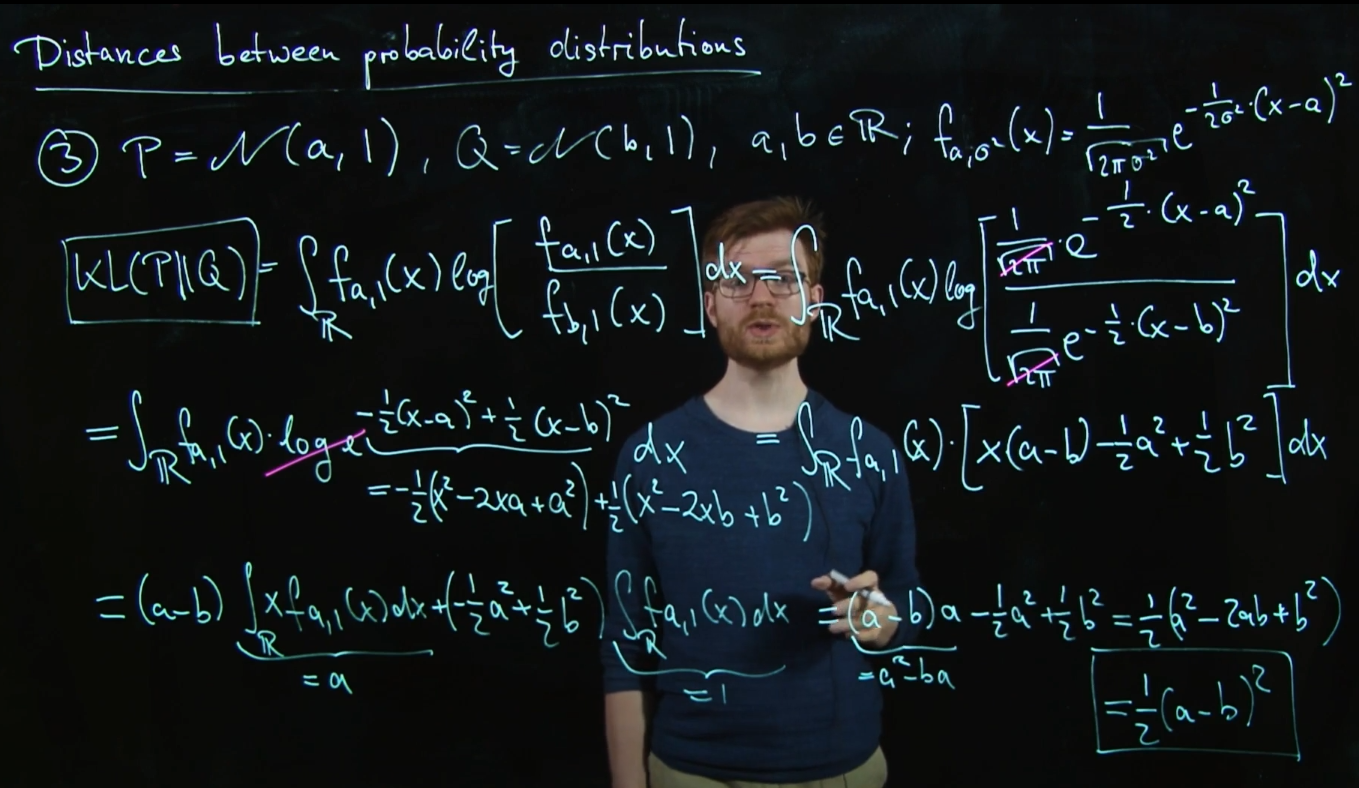 Distances between probability distributions
③ P = N(a,1), Q = N(b,1), a,b ∈ ℝ; f_{a,σ²}(x) = 1/√(2πσ²) e^{-1/(2σ²)·(x-a)²}
KL(P||Q) = ∫_ℝ f_{a,1}(x) log[ f_{a,1}(x) / f_{b,1}(x) ] dx = ∫_ℝ f_{a,1}(x) log[ (1/√(2π) · e^{-1/2·(x-a)²}) / (1/√(2π) e^{-1/2·(x-b)²}) ] dx
= ∫_ℝ f_{a,1}(x) · log e^{-1/2(x-a)² + 1/2(x-b)²} dx = ∫_ℝ f_{a,1}(x) · [x(a-b) - 1/2a² + 1/2b²] dx
= -1/2(x² - 2xa + a²) + 1/2(x² - 2xb + b²)
= (a-b) ∫_ℝ x f_{a,1}(x) dx + (-1/2a² + 1/2b²) ∫_ℝ f_{a,1}(x) dx = (a-b)a - 1/2a² + 1/2b² = 1/2(a² - 2ab + b²)
= a = 1 = a² - ba
= 1/2(a-b)²